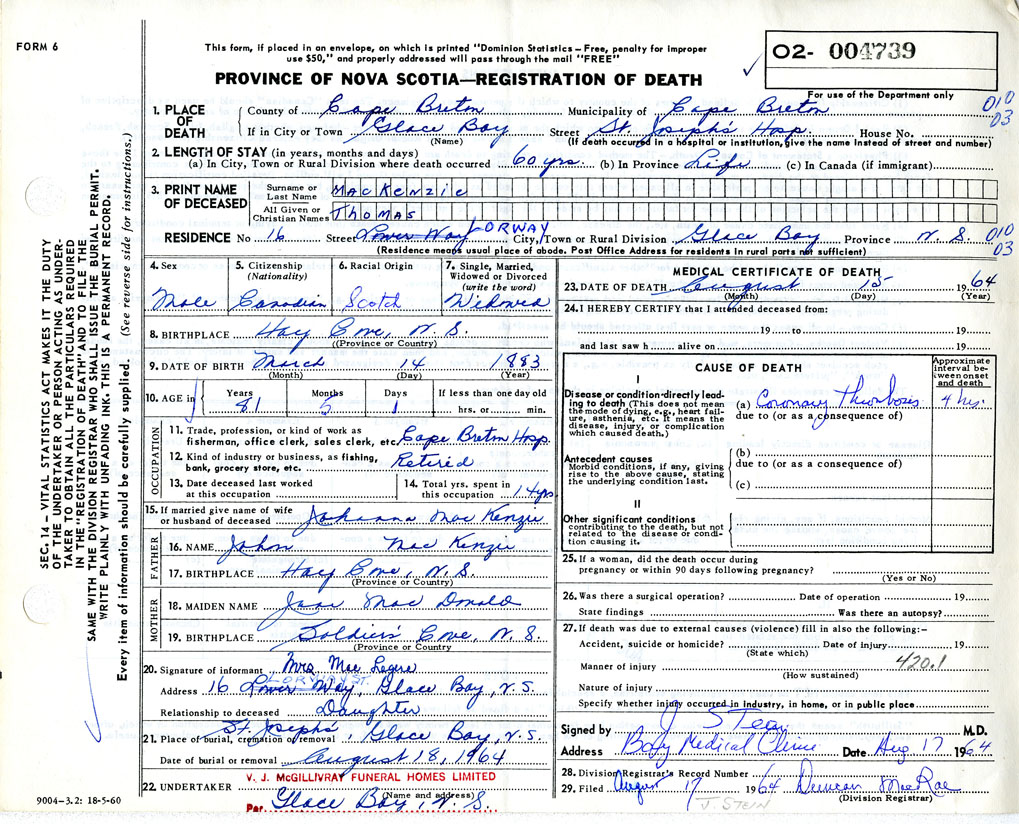 FORM 6
This form, if placed in an envelope, on which is printed "Dominion Statistics – Free, penalty for improper
use $50," and properly addressed will pass through the mail "FREE"
PROVINCE OF NOVA SCOTIA—REGISTRATION OF DEATH
02- 004739
For use of the Department only
1. PLACE OF DEATH County of Cape Breton Municipality of Cape Breton 010
If in City or Town Glace Bay Street St. Joseph's Hosp. House No. 03
(Name) (If death occurred in a hospital or institution, give the name instead of street and number)
2. LENGTH OF STAY (in years, months and days)
(a) In City, Town or Rural Division where death occurred 60 yrs. (b) In Province Life (c) In Canada (if immigrant)
3. PRINT NAME OF DECEASED
Surname or Last Name MacKenzie
All Given or Christian Names Thomas
RESIDENCE No 16 Street Lower Way LORWAY City, Town or Rural Division Glace Bay Province N. S. 010
(Residence means usual place of abode. Post Office Address for residents in rural parts not sufficient) 03
4. Sex 5. Citizenship (Nationality) 6. Racial Origin 7. Single, Married, Widowed or Divorced (write the word)
Male Canadian Scotch Widowed
8. BIRTHPLACE Hay Cove, N. S.
(Province or Country)
9. DATE OF BIRTH March 14 1883
(Month) (Day) (Year)
10. AGE in Years Months Days If less than one day old
81 5 1 hrs. or min.
OCCUPATION
11. Trade, profession, or kind of work as
fisherman, office clerk, sales clerk, etc. Cape Breton Hosp.
12. Kind of industry or business, as fishing,
bank, grocery store, etc. Retired
13. Date deceased last worked
at this occupation
14. Total yrs. spent in
this occupation 14 yrs
15. If married give name of wife
or husband of deceased Johanna Mac Kenzie
FATHER
16. NAME John Mac Kenzie
17. BIRTHPLACE Hay Cove, N. S.
(Province or Country)
MOTHER
18. MAIDEN NAME Jane Mac Donald
19. BIRTHPLACE Soldier's Cove, N. S.
(Province or Country)
20. Signature of informant Mrs. Mae Legere
LORWAY ST.
Address 16 Lower Way, Glace Bay, N. S.
Relationship to deceased Daughter
21. Place of burial, cremation or removal St. Joseph's, Glace Bay, N. S.
Date of burial or removal August 18, 1964
22. UNDERTAKER V. J. McGILLIVRAY FUNERAL HOMES LIMITED
(Name and address)
Per. Glace Bay, N. S.
9004-3.2: 18-5-60
MEDICAL CERTIFICATE OF DEATH
23. DATE OF DEATH August 15 1964
(Month) (Day) (Year)
24. I HEREBY CERTIFY that I attended deceased from:
19 to 19
and last saw h alive on 19
CAUSE OF DEATH
Approximate interval between onset and death
I
Disease or condition directly leading to death (This does not mean the mode of dying, e.g., heart failure, asthenia, etc. It means the disease, injury, or complication which caused death.)
(a) Coronary thrombosis 4 hrs.
due to (or as a consequence of)
Antecedent causes
Morbid conditions, if any, giving rise to the above cause, stating the underlying condition last.
(b)
due to (or as a consequence of)
(c)
II
Other significant conditions
contributing to the death, but not related to the disease or condition causing it.
25. If a woman, did the death occur during
pregnancy or within 90 days following pregnancy?
(Yes or No)
26. Was there a surgical operation? Date of operation 19
State findings Was there an autopsy?
27. If death was due to external causes (violence) fill in also the following:–
Accident, suicide or homicide? Date of injury 19
(State which) 420.1
Manner of injury
(How sustained)
Nature of injury
Specify whether injury occurred in industry, in home, or in public place
Signed by J Stein M.D.
Address Bay Medical Clinic Date Aug 17 1964
28. Division Registrar's Record Number
29. Filed August 17 1964 Duncan MacRae
(Division Registrar)
J. STEIN
SEC. 14 – VITAL STATISTICS ACT MAKES IT THE DUTY
OF THE UNDERTAKER OR PERSON ACTING AS UNDER-
TAKER TO OBTAIN ALL THE PARTICULARS REQUIRED
IN THE "REGISTRATION OF DEATH" AND TO FILE THE
SAME WITH THE DIVISION REGISTRAR WHO SHALL ISSUE THE BURIAL PERMIT.
WRITE PLAINLY WITH UNFADING INK. THIS IS A PERMANENT RECORD.
Every item of information should be carefully supplied. (See reverse side for instructions.)